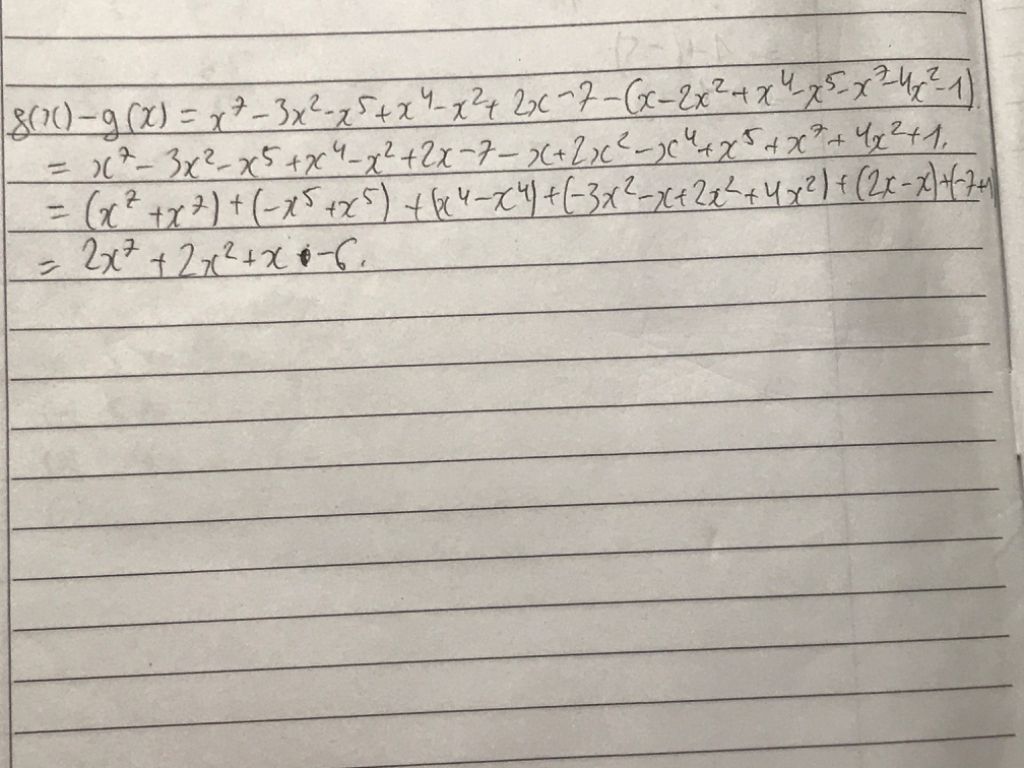 f(x) - g(x) = x⁷ - 3x² - x⁵ + x⁴ - x² + 2x - 7 - (x - 2x² + x⁴ - x⁵ - x⁷ - 4x² - 1)
= x⁷ - 3x² - x⁵ + x⁴ - x² + 2x - 7 - x + 2x² - x⁴ + x⁵ + x⁷ + 4x² + 1.
= (x⁷ + x⁷) + (-x⁵ + x⁵) + (x⁴ - x⁴) + (-3x² - x + 2x² + 4x²) + (2x - x) + (-7 + 1
= 2x⁷ + 2x² + x - 6.